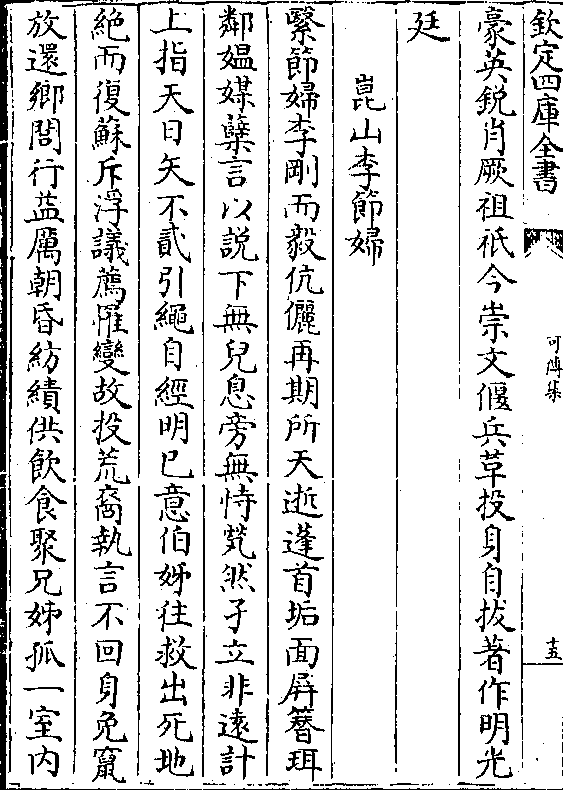 欽定四庫全書
可傳集
十五
豪英鋭肖厥祖祇今崇文偃兵草投身自拔著作明光
廷
崑山李節婦
繄節婦李剛而毅伉儷再期所天逝蓬首垢面屏簪珥
鄰媼媒櫱言以説下無兒息旁無恃煢然孑立非遠計
上指天日矢不貳引繩自經明已意伯姊往救出死地
絶而復蘇斥浮議薦罹變故投荒裔執言不回身免竄
放還鄉閭行益厲朝昏紡績供飲食聚兄姊孤一室内